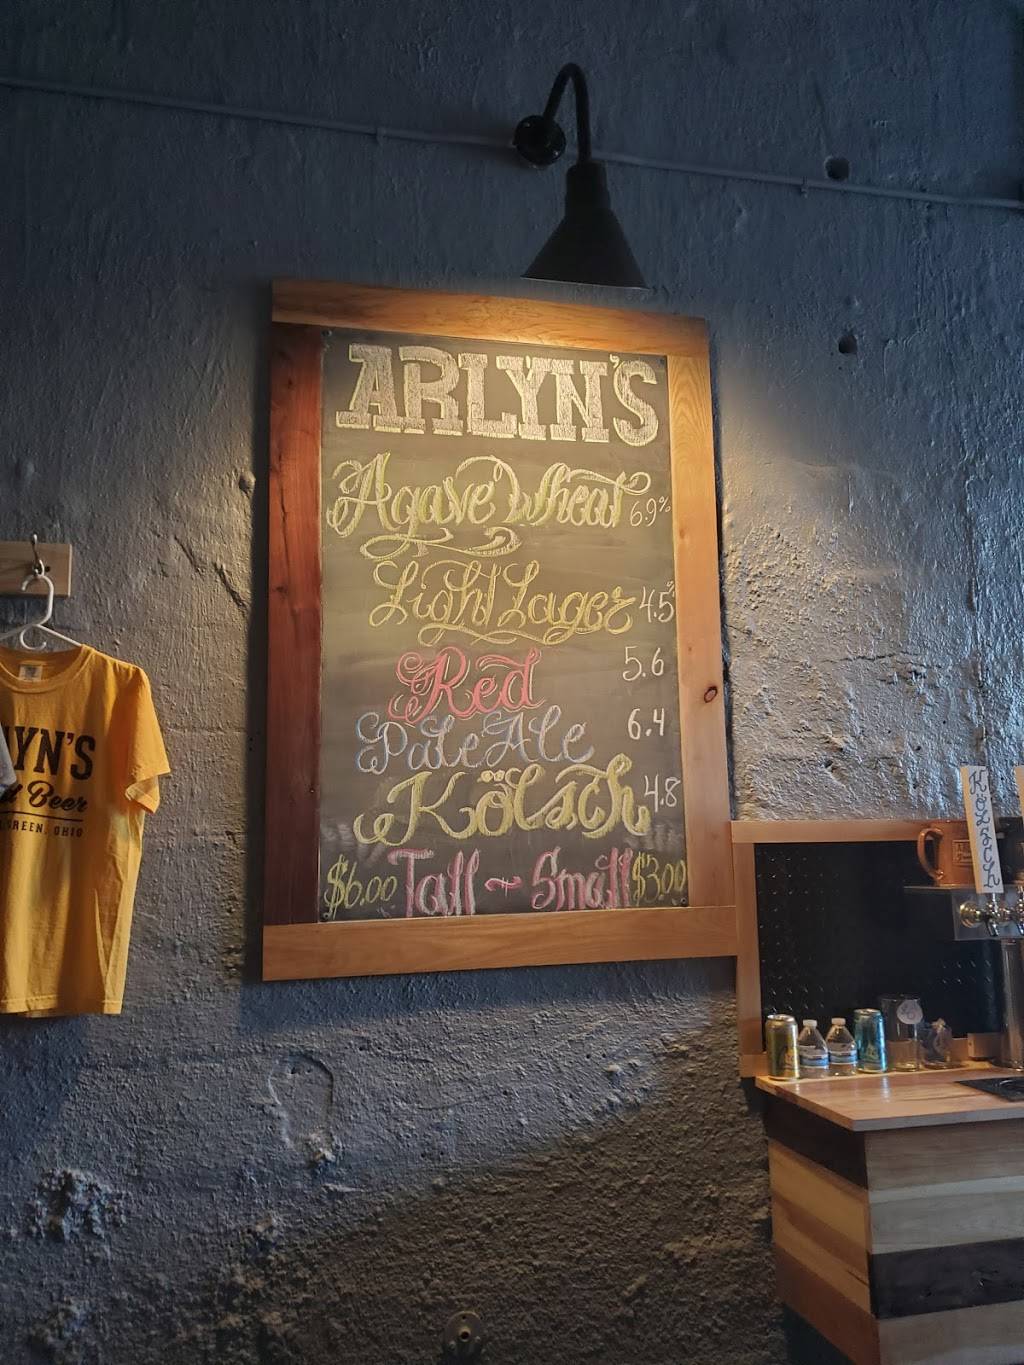 ARLYN'S
Agave Wheat 6.9%
Light Lager 4.5%
Red 5.6
Pale Ale 6.4
Kölsch 4.8
$6.00 Tall ~ Small $3.00
YN'S
Beer
GREEN, OHIO
KÖLSCH